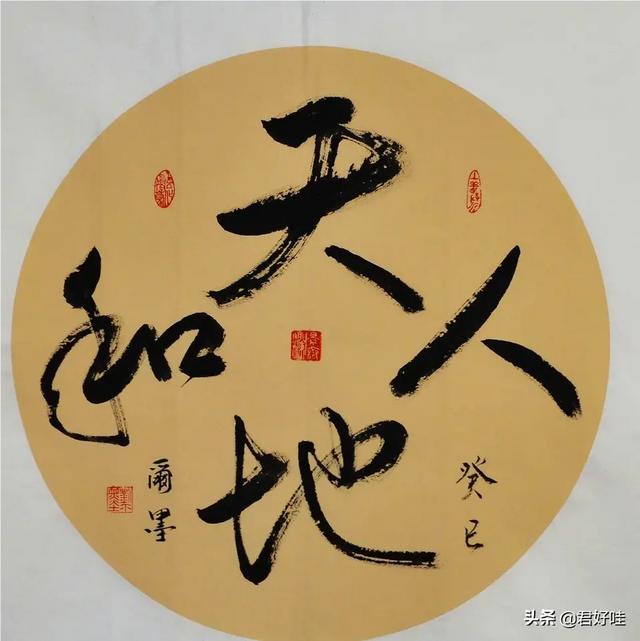 天
地
人
和
癸巳
爾墨
头条 @君好哇